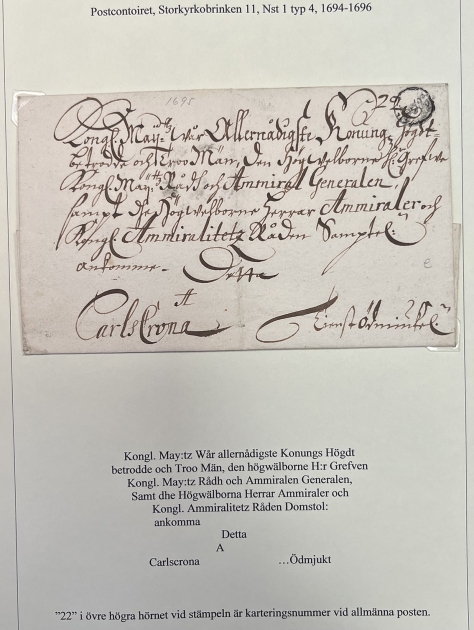 Postcontoiret, Storkyrkobrinken 11, Nst 1 typ 4, 1694-1696
1695
22
Kongl. May:tz Wår Allernådigste Konungz Högdt-
betrodde och Troo Män, den Högwelborne H:r Grefwe
Kongl. May:tz Rådh och Ammiral Generalen,
sampt dhe Högwelborne Herrar Ammiraler och
Kongl. Ammiralitetz Råden Samptel:n
ankomme. Detta
A
CarlsCrona
Kongl. May:tz Wår allernådigste Konungs Högdt
betrodde och Troo Män, den högwälborne H:r Grefven
Kongl. May:tz Rådh och Ammiralen Generalen,
Samt dhe Högwälborna Herrar Ammiraler och
Kongl. Ammiralitetz Råden Domstol:
ankomma
Detta
A
Carlscrona …Ödmjukt
”22” i övre högra hörnet vid stämpeln är karteringsnummer vid allmänna posten.